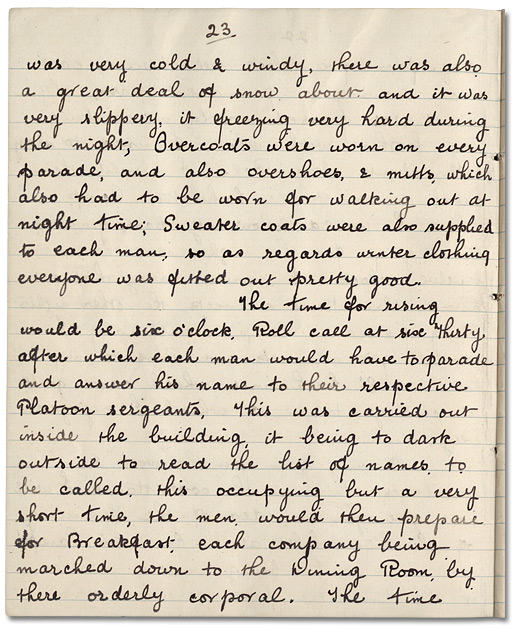 23
was very cold & windy, there was also
a great deal of snow about and it was
very slippery, it freezing very hard during
the night, Overcoats were worn on every
parade, and also overshoes, & mitts, which
also had to be worn for walking out at
night time; Sweater coats were also supplied
to each man, so as regards winter clothing
everyone was fitted out pretty good.
The time for rising
would be six o'clock, Roll call at six Thirty,
after which each man would have to parade
and answer his name to their respective
Platoon sergeants, This was carried out
inside the building, it being to dark
outside to read the list of names, to
be called, this occupying but a very
short time, the men, would then prepare
for Breakfast, each company being
marched down to the Dining Room, by
there orderly corporal. The time